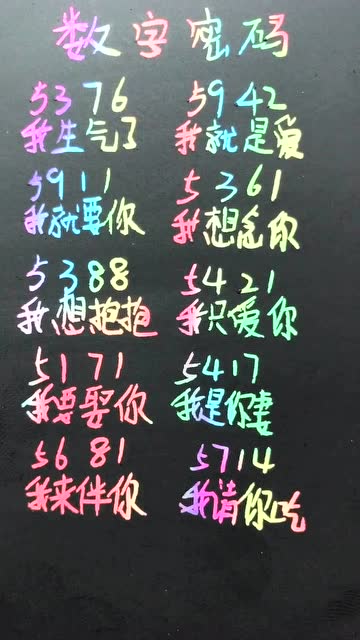 数字密码
5376 5942
我生气了 我就是爱
5911 5361
我就要你 我想念你
5388 5421
我想抱抱 我只爱你
5171 5417
我要娶你 我是你妻
5681 5714
我来伴你 我请你吃